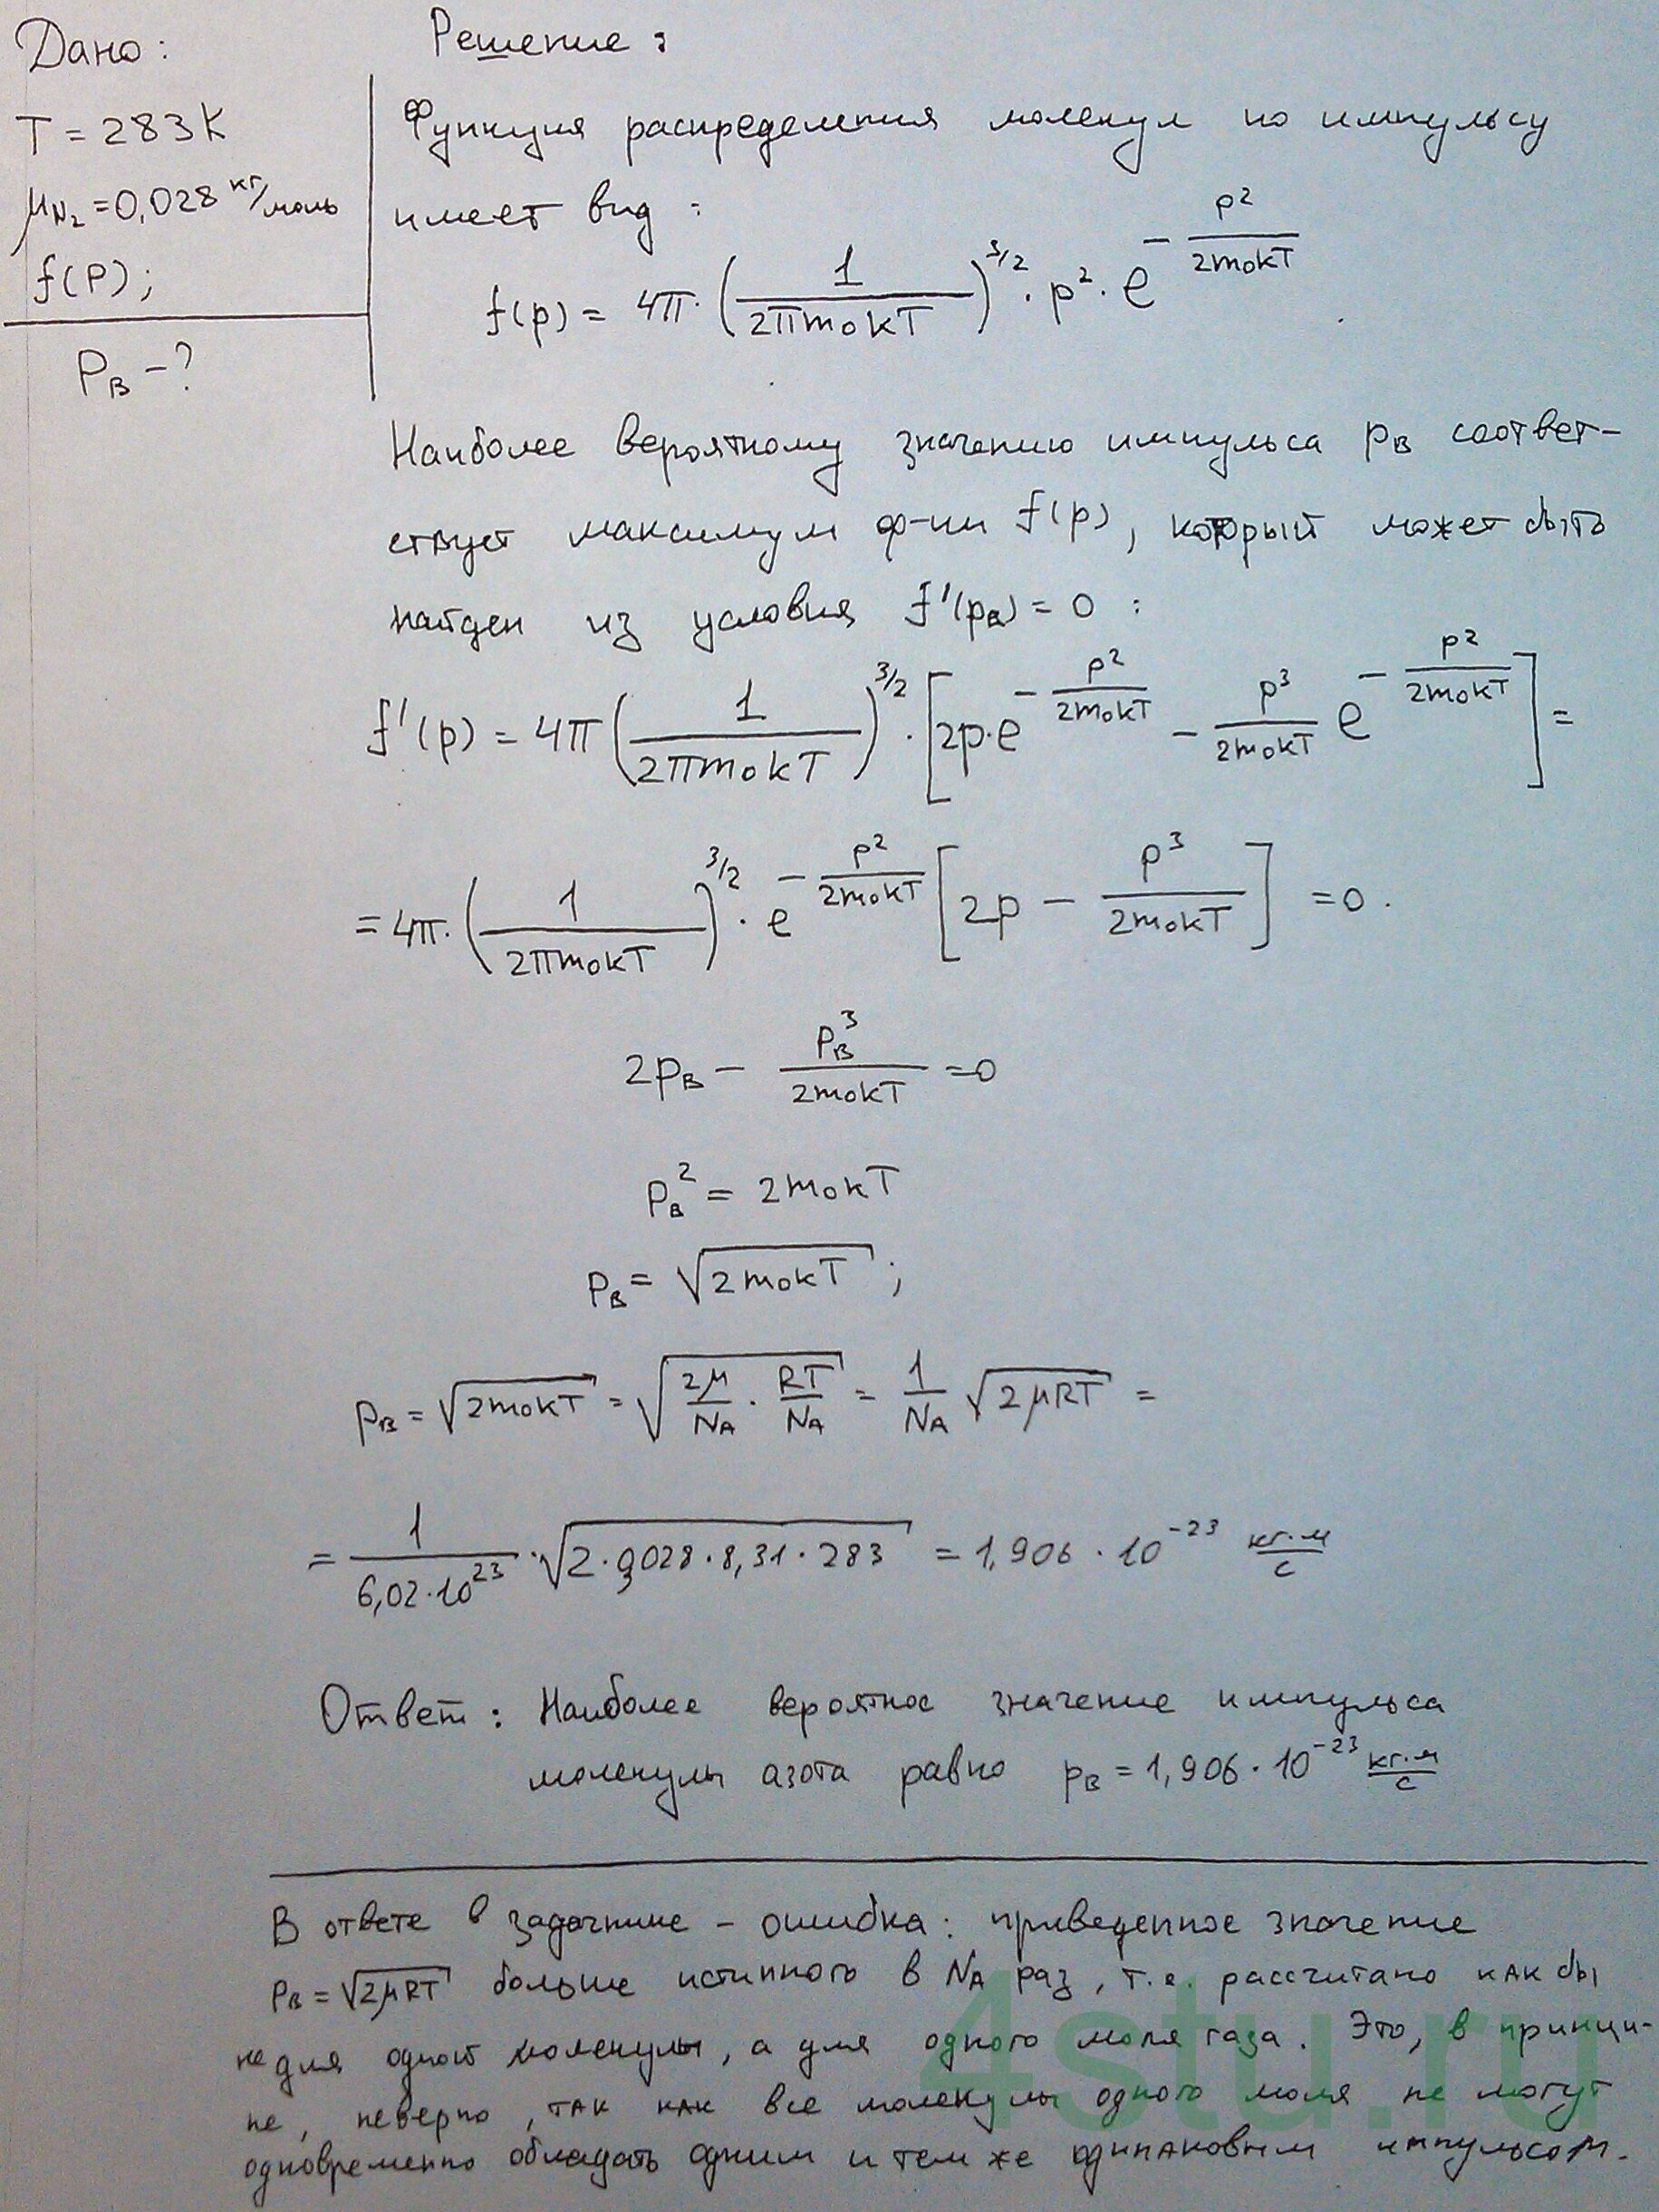 Дано:
T = 283 К
μ_N₂ = 0,028 кг/моль
f(P);
P_В – ?
Решение:
Функция распределения молекул по импульсу
имеет вид:
f(p) = 4π · (1/(2πm₀kT))^(3/2) · p² · e^(−p²/(2m₀kT))
Наиболее вероятному значению импульса p_В соответ–
ствует максимум ф-ии f(p), который может быть
найден из условия f'(p_В) = 0 :
f'(p) = 4π (1/(2πm₀kT))^(3/2) · [2p·e^(−p²/(2m₀kT)) − p³/(2m₀kT) e^(−p²/(2m₀kT))] =
= 4π · (1/(2πm₀kT))^(3/2) · e^(−p²/(2m₀kT)) [2p − p³/(2m₀kT)] = 0 .
2p_В − p_В³/(2m₀kT) = 0
p_В² = 2m₀kT
p_В = √(2m₀kT) ;
p_В = √(2m₀kT) = √(2μ/N_A · RT/N_A) = 1/N_A √(2μRT) =
= 1/(6,02·10²³) · √(2·0,028·8,31·283) = 1,906 · 10⁻²³ кг·м/с
Ответ: Наиболее вероятное значение импульса
молекулы азота равно p_В = 1,906 · 10⁻²³ кг·м/с
В ответе в задачнике – ошибка: приведенное значение
p_В = √(2μRT) больше истинного в N_A раз, т.е. рассчитано как бы
не для одной молекулы, а для одного моля газа. Это, в принци-
пе, неверно, так как все молекулы одного моля не могут
одновременно обладать одним и тем же одинаковым импульсом.
4stu.ru